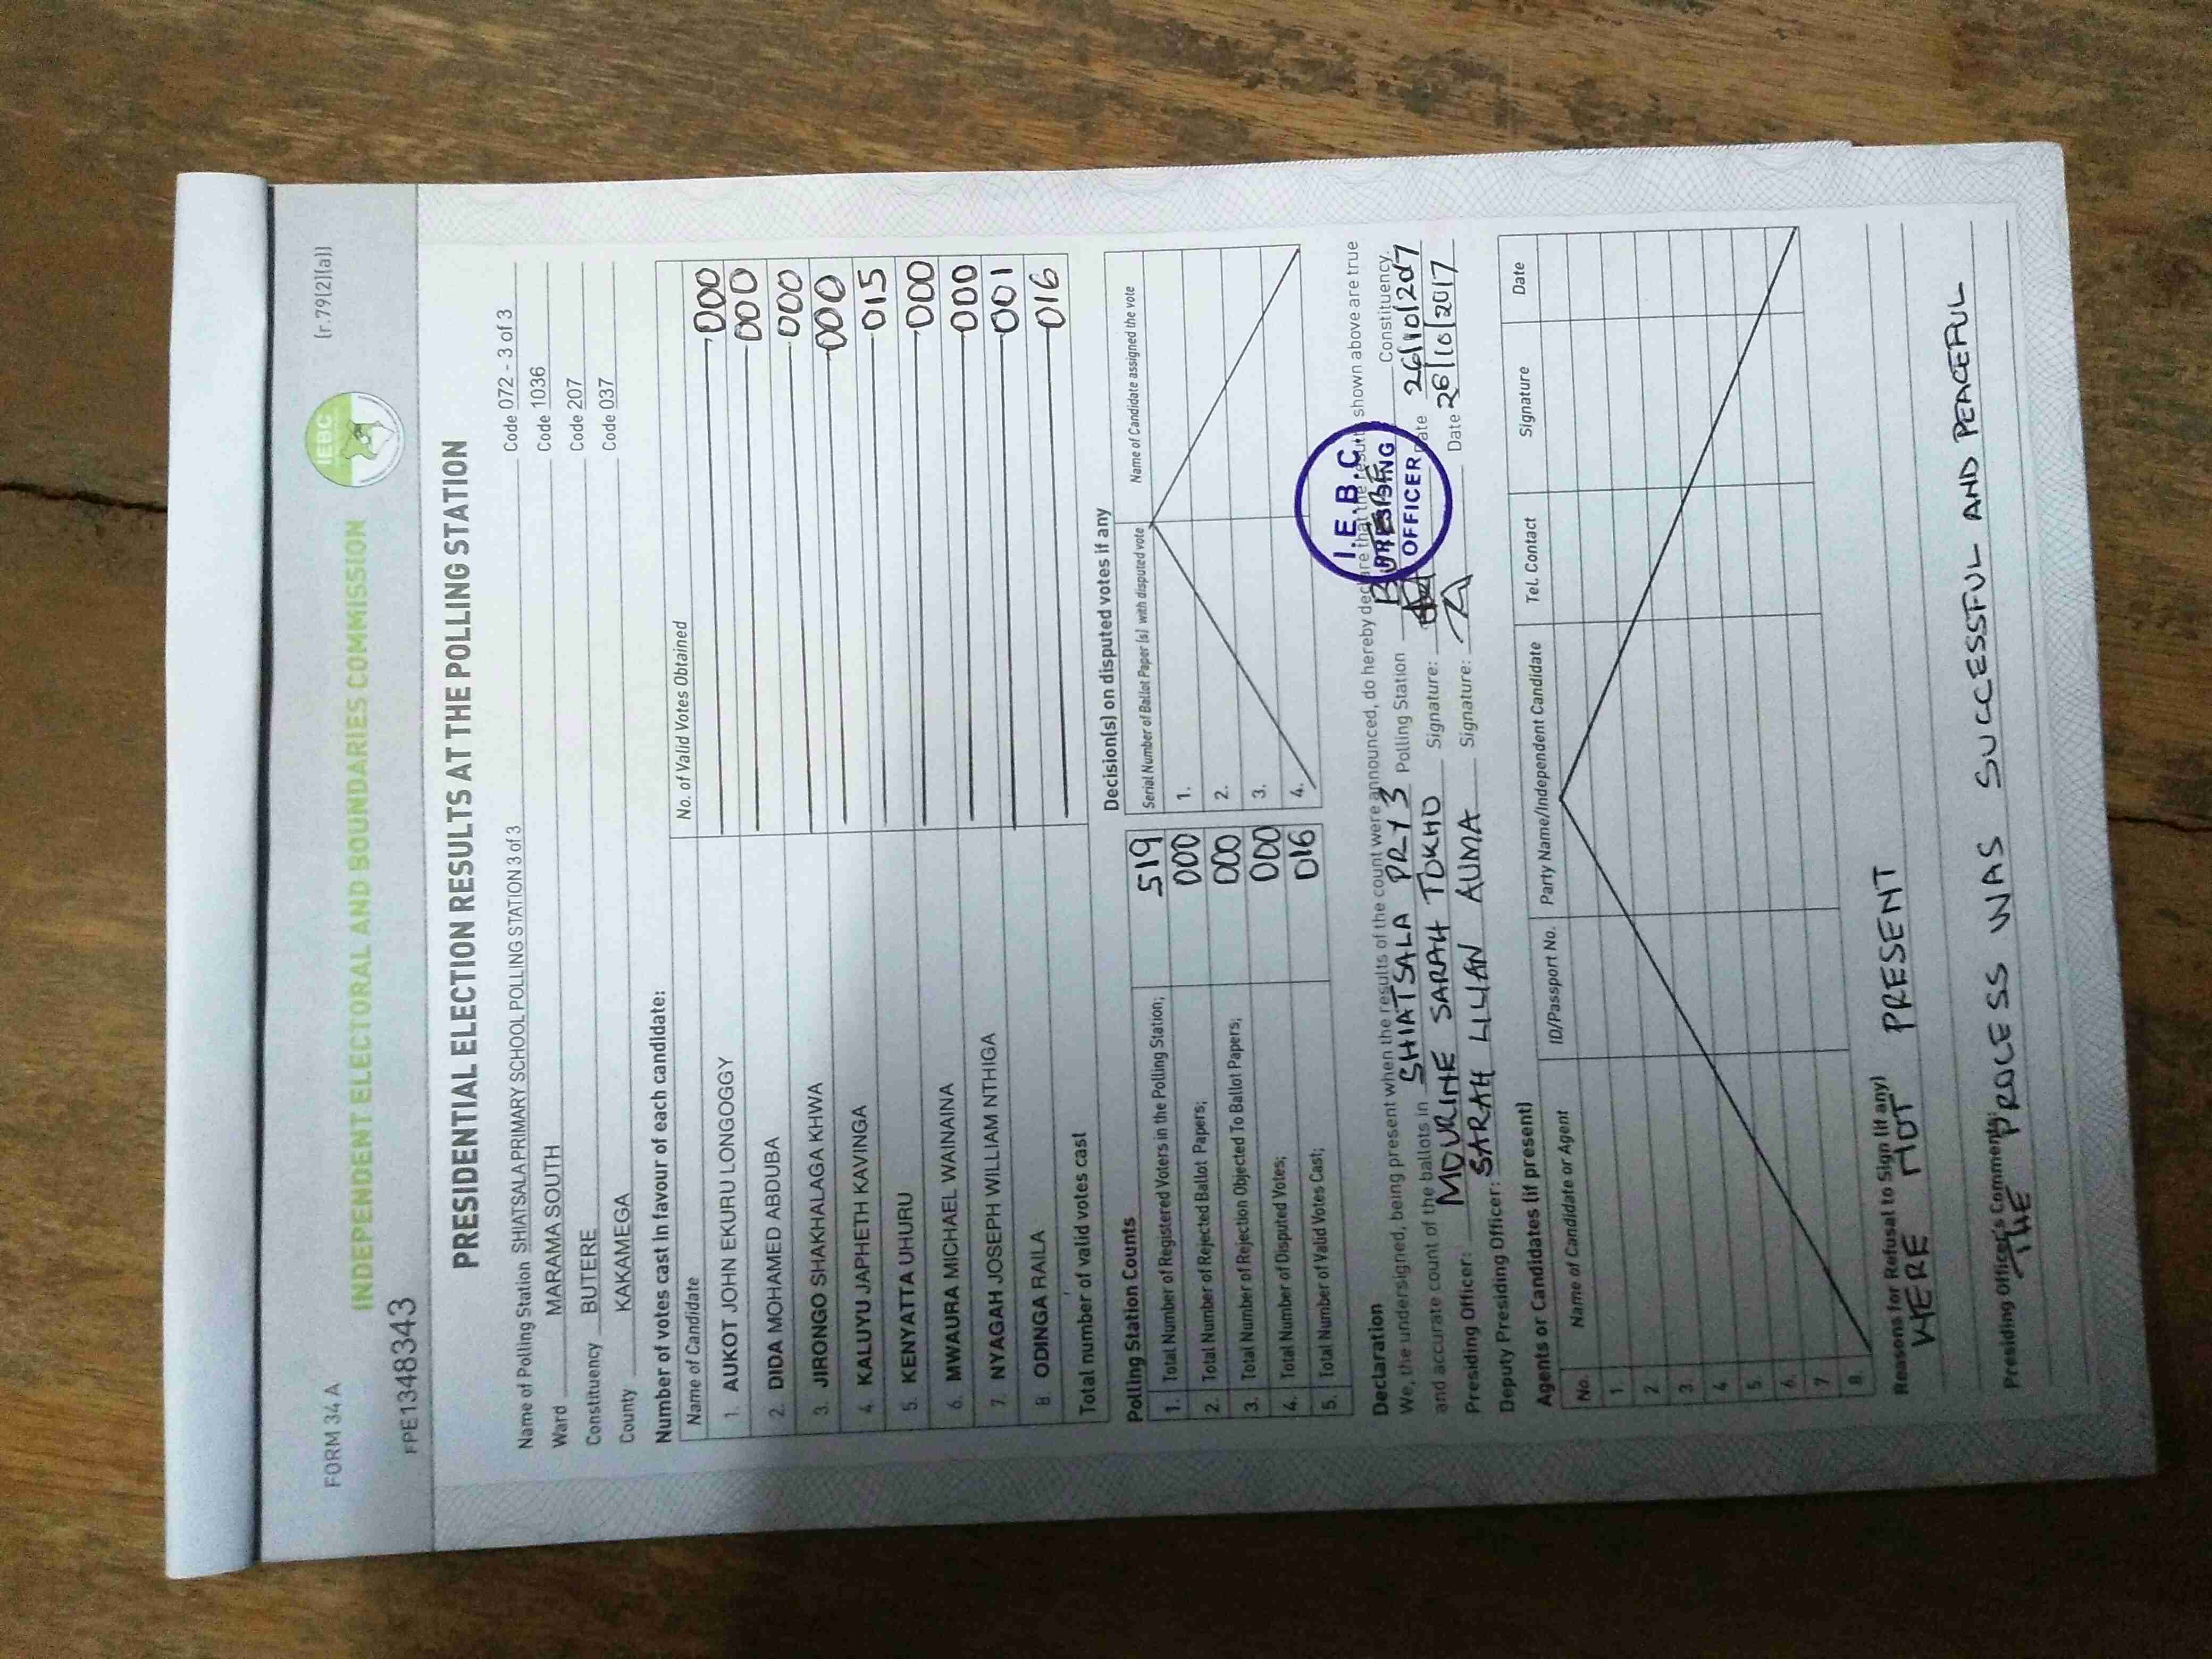 FORM 34A
(r.79(2)(a))
IEBC
INDEPENDENT ELECTORAL AND BOUNDARIES COMMISSION
FPE1348343
PRESIDENTIAL ELECTION RESULTS AT THE POLLING STATION
Name of Polling Station SHIATSALA PRIMARY SCHOOL POLLING STATION 3 of 3 Code 072 - 3 of 3
Ward MARAMA SOUTH Code 1036
Constituency BUTERE Code 207
County KAKAMEGA Code 037
Number of votes cast in favour of each candidate:
Name of Candidate No. of Valid Votes Obtained
1. AUKOT JOHN EKURU LONGOGGY 000
2. DIDA MOHAMED ABDUBA 000
3. JIRONGO SHAKHALAGA KHWA 000
4. KALUYU JAPHETH KAVINGA 000
5. KENYATTA UHURU 015
6. MWAURA MICHAEL WAINAINA 000
7. NYAGAH JOSEPH WILLIAM NTHIGA 000
8 ODINGA RAILA 001
Total number of valid votes cast 016
Polling Station Counts
1. Total Number of Registered Voters in the Polling Station; 519
2. Total Number of Rejected Ballot Papers; 000
3. Total Number of Rejection Objected To Ballot Papers; 000
4. Total Number of Disputed Votes; 000
5. Total Number of Valid Votes Cast; 016
Decision(s) on disputed votes if any
Serial Number of Ballot Paper (s) with disputed vote Name of Candidate assigned the vote
1.
2.
3.
4.
Declaration
We, the undersigned, being present when the results of the count were announced, do hereby declare that the results shown above are true
and accurate count of the ballots in SHIATSALA PRY 3 Polling Station BUTERE Constituency.
Presiding Officer: MOURINE SARAH TOKHO Signature: Date 26/10/2017
Deputy Presiding Officer: SARAH LILIAN AUMA Signature: Date 26/10/2017
I.E.B.C.
PRESIDING
OFFICER
Agents or Candidates (if present)
No. Name of Candidate or Agent ID/Passport No. Party Name/Independent Candidate Tel. Contact Signature Date
1.
2
3
4
5.
6.
7
8.
Reasons for Refusal to Sign (if any)
WERE NOT PRESENT
Presiding Officer's Comments:
THE PROCESS WAS SUCCESSFUL AND PEACEFUL